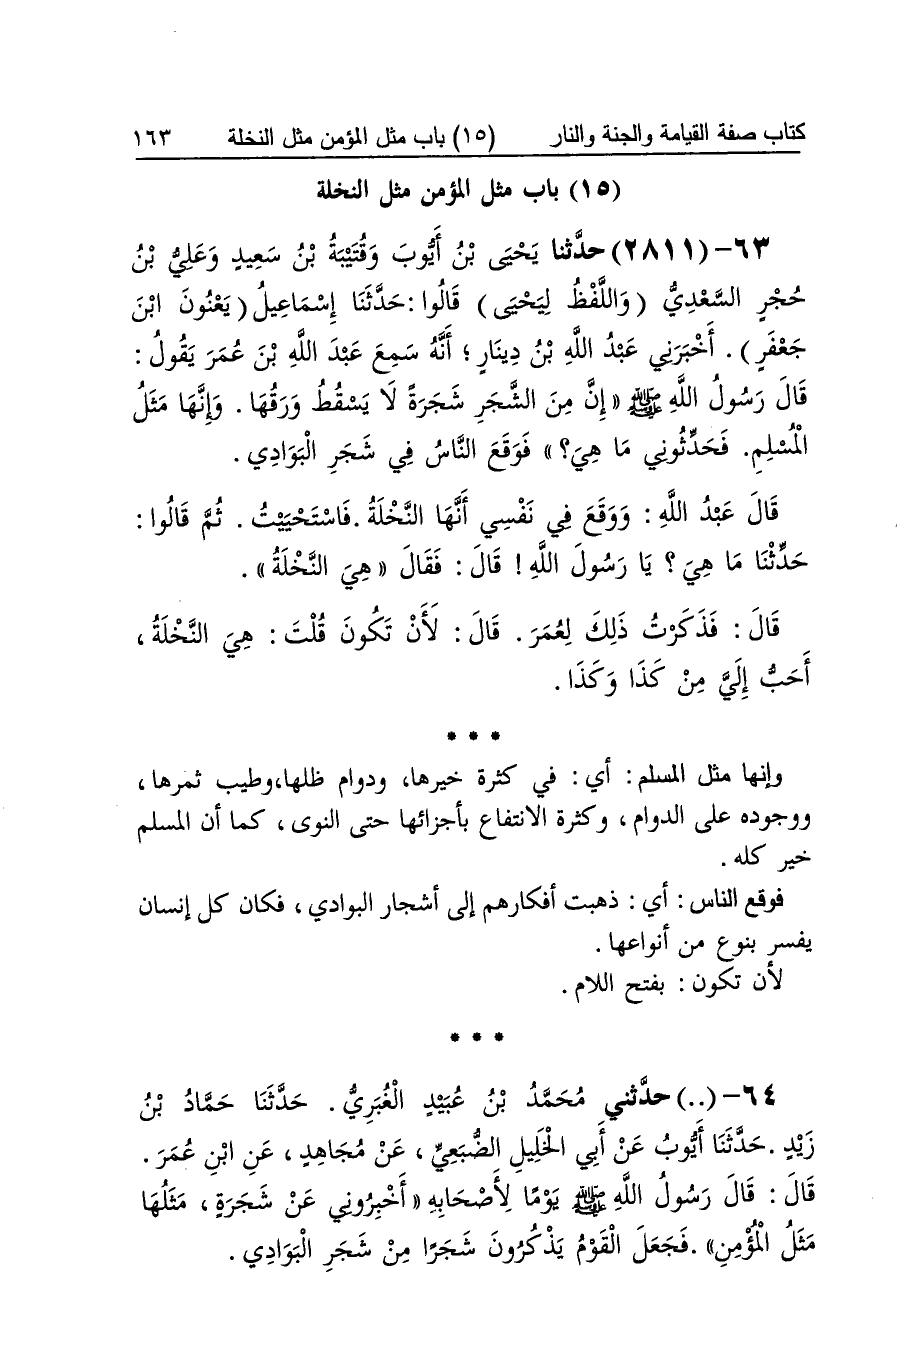 كتاب صفة القيامة والجنة والنار (١٥) باب مثل المؤمن مثل النخلة ١٦٣
(١٥) باب مثل المؤمن مثل النخلة
٦٣-(٢٨١١) حدَّثنا يَحْيَى بْنُ أَيُّوبَ وَقُتَيْبَةُ بْنُ سَعِيدٍ وَعَلِيُّ بْنُ
حُجْرٍ السَّعْدِيُّ (وَاللَّفْظُ لِيَحْيَى) قَالُوا: حَدَّثَنَا إِسْمَاعِيلُ (يَعْنُونَ ابْنَ
جَعْفَرٍ). أَخْبَرَنِي عَبْدُ اللَّهِ بْنُ دِينَارٍ؛ أَنَّهُ سَمِعَ عَبْدَ اللَّهِ بْنَ عُمَرَ يَقُولُ:
قَالَ رَسُولُ اللَّهِ ﷺ «إِنَّ مِنَ الشَّجَرِ شَجَرَةً لَا يَسْقُطُ وَرَقُهَا. وَإِنَّهَا مَثَلُ
الْمُسْلِمِ. فَحَدِّثُونِي مَا هِيَ؟» فَوَقَعَ النَّاسُ فِي شَجَرِ الْبَوَادِي.
قَالَ عَبْدُ اللَّهِ: وَوَقَعَ فِي نَفْسِي أَنَّهَا النَّخْلَةُ. فَاسْتَحْيَيْتُ. ثُمَّ قَالُوا:
حَدِّثْنَا مَا هِيَ؟ يَا رَسُولَ اللَّهِ! قَالَ: فَقَالَ «هِيَ النَّخْلَةُ».
قَالَ: فَذَكَرْتُ ذَلِكَ لِعُمَرَ. قَالَ: لَأَنْ تَكُونَ قُلْتَ: هِيَ النَّخْلَةُ،
أَحَبُّ إِلَيَّ مِنْ كَذَا وَكَذَا.
* * *
وإنها مثل المسلم: أي: في كثرة خيرها، ودوام ظلها، وطيب ثمرها،
ووجوده على الدوام، وكثرة الانتفاع بأجزائها حتى النوى، كما أن المسلم
خير كله.
فوقع الناس: أي: ذهبت أفكارهم إلى أشجار البوادي، فكان كل إنسان
يفسر بنوع من أنواعها.
لأن تكون: بفتح اللام.
* * *
٦٤-(..) حدَّثني مُحَمَّدُ بْنُ عُبَيْدٍ الْغُبَرِيُّ. حَدَّثَنَا حَمَّادُ بْنُ
زَيْدٍ. حَدَّثَنَا أَيُّوبُ عَنْ أَبِي الْخَلِيلِ الضُّبَعِيِّ، عَنْ مُجَاهِدٍ، عَنِ ابْنِ عُمَرَ.
قَالَ: قَالَ رَسُولُ اللَّهِ ﷺ يَوْمًا لِأَصْحَابِهِ «أَخْبِرُونِي عَنْ شَجَرَةٍ، مَثَلُهَا
مَثَلُ الْمُؤْمِنِ». فَجَعَلَ الْقَوْمُ يَذْكُرُونَ شَجَرًا مِنْ شَجَرِ الْبَوَادِي.